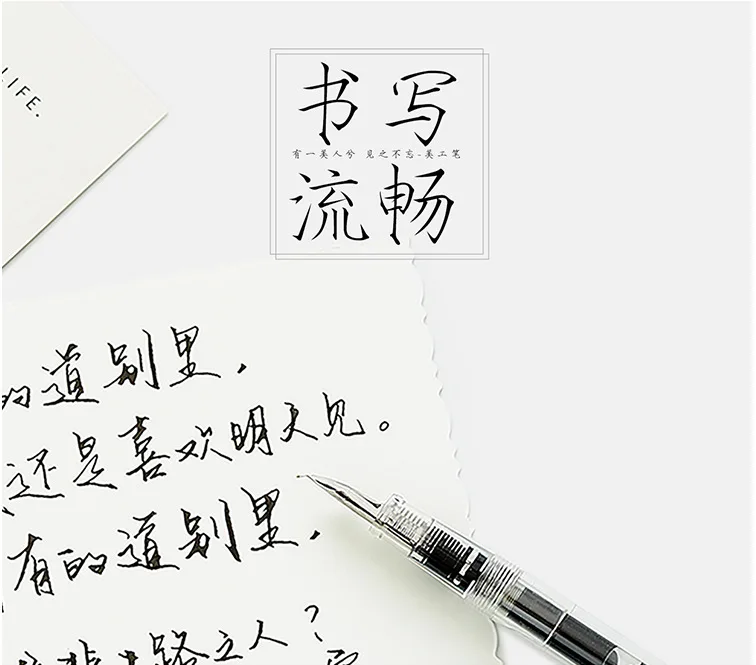 LIFE.
书写
有一美人兮 见之不忘-美工笔
流畅
的道别里，
还是喜欢明天见。
有的道别里，
路之人？